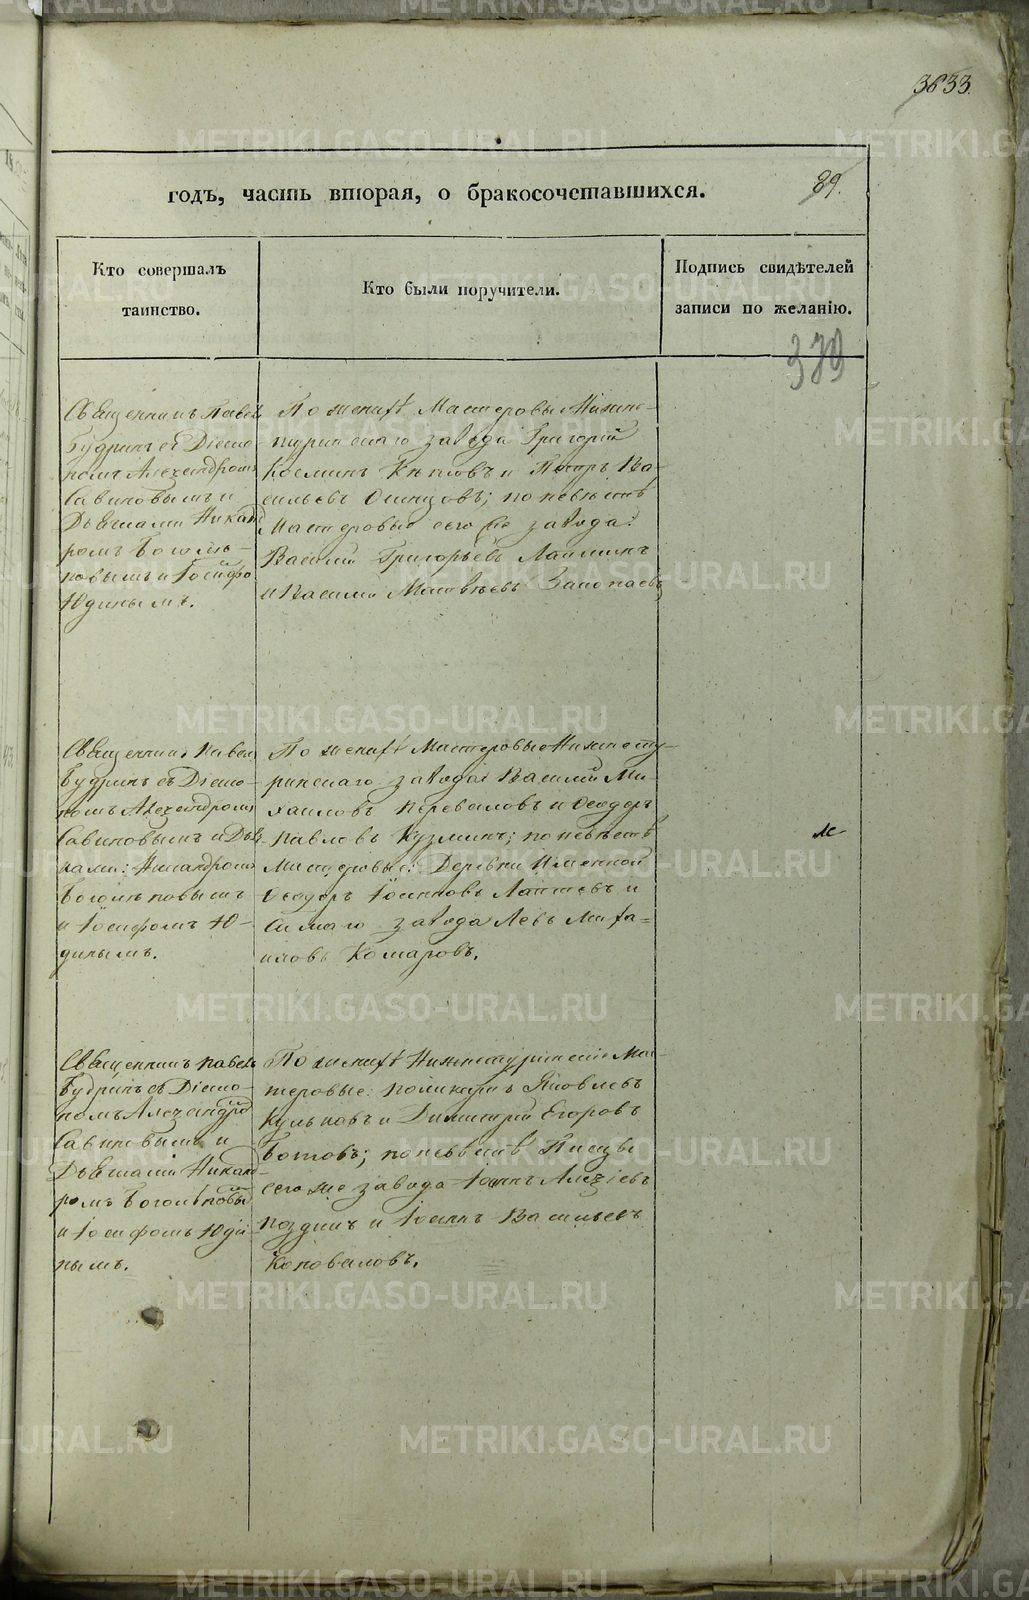 3833.
годъ, часть вторая, о бракосочетавшихся.
89.
Кто совершалъ
таинство.
Кто были поручители.
Подпись свидѣтелей
записи по желанію.
379
Священникъ Павелъ
Будринъ съ Діако-
номъ Александромъ
Савиновымъ и
Дьячками Никанд
ромъ Боголѣ-
повымъ и Іосифо
Юдинымъ.
По женихѣ Мастеровые Нижне-
туринскаго завода Григорій
Косминъ и Петръ Ва-
сильевъ по невѣстѣ
Мастеровые сего же завода:
Василій Григорьевъ Лапшинъ
и Василій Матвѣевъ
Священникъ Павелъ
Будринъ съ Діако-
номъ Александромъ
Савиновымъ и Дьяч
ками: Никандромъ
Боголѣповымъ
и Іосифомъ Ю-
динымъ.
По женихѣ Мастеровые Нижнету-
ринскаго завода Василій Ми-
хаиловъ Переваловъ и Ѳеодоръ
Павловъ Кузминъ; по невѣстѣ
Мастеровые: Деревни Именной
Ѳеодоръ Іоанновъ Лаптевъ и
самаго завода Левъ Миха-
иловъ Комаровъ.
Священникъ Павелъ
Будринъ съ Діако-
номъ Александро
Савиновымъ и
Дьячками Никанд-
ромъ Боголѣповы
и Іосифомъ Юди-
нымъ.
По женихѣ Нижнетуринскіе Мас-
теровые: Поликарпъ Яковлевъ
Кульковъ и Димитрій Егоровъ
Ботовъ; по невѣстѣ Писцы
сего же завода Іоаннъ Алексіевъ
Поздинъ и Іоаннъ Васильевъ
Коноваловъ.
METRIKI.GASO-URAL.RU